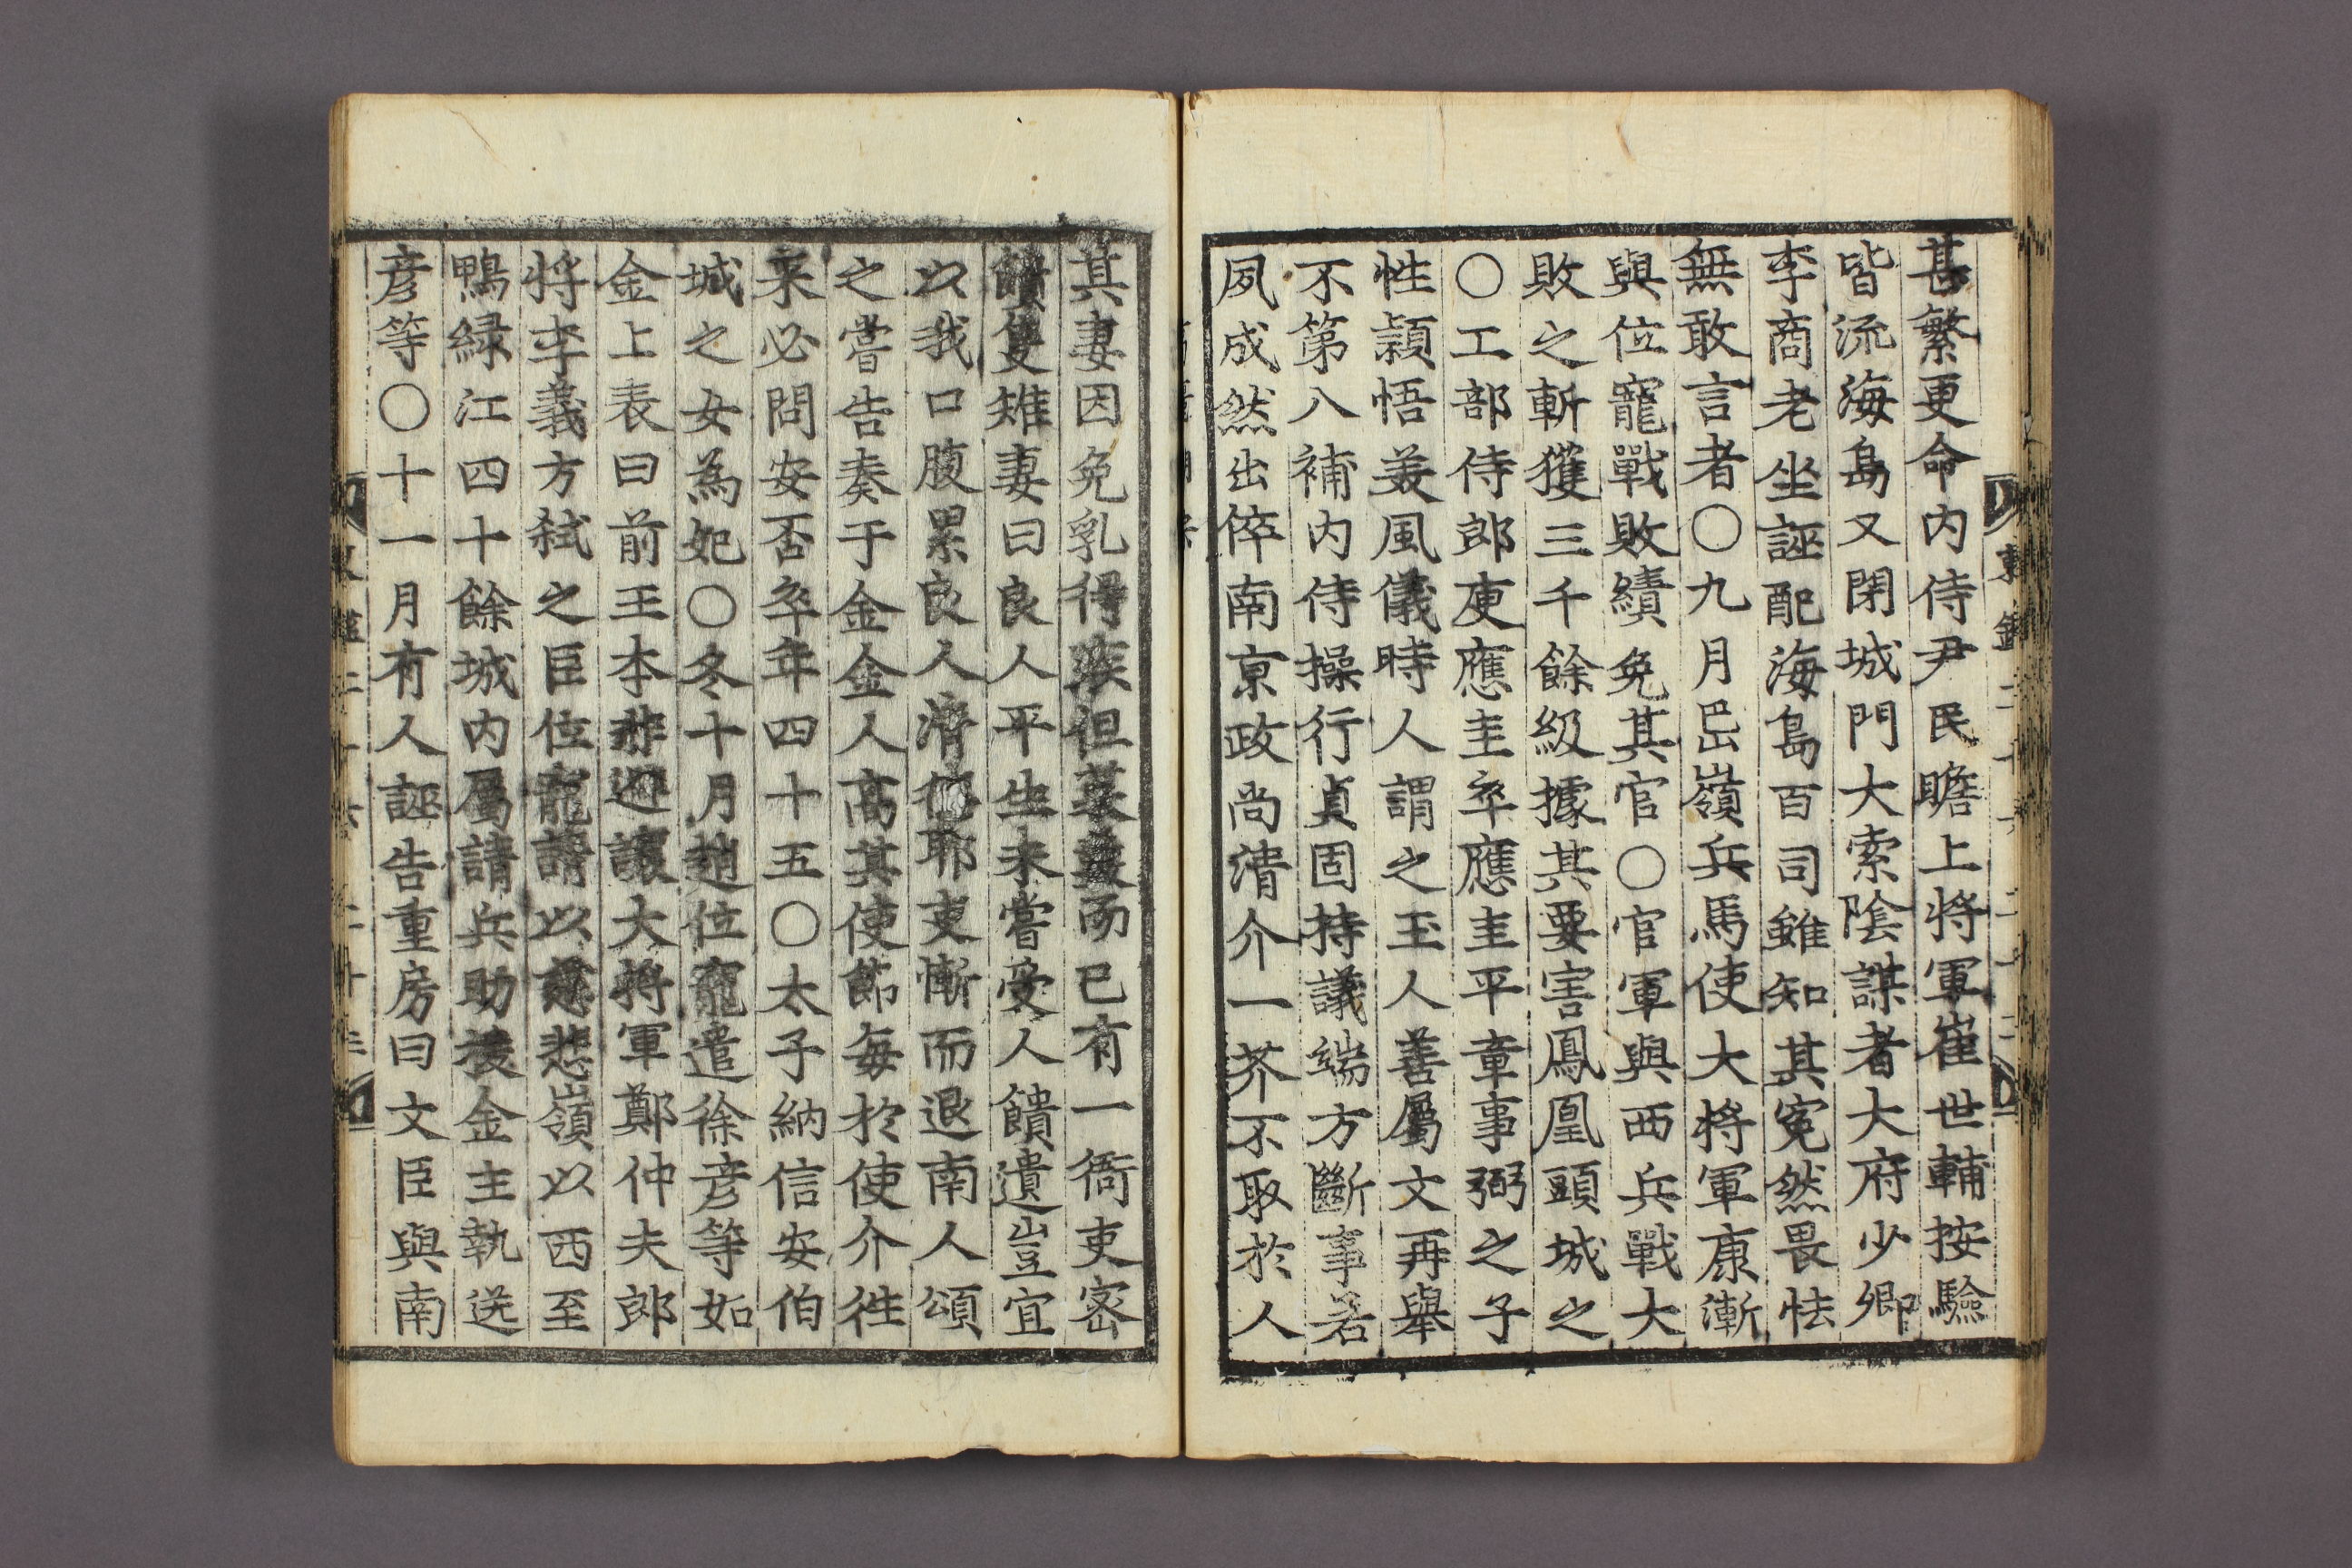 甚繁更命内侍尹民瞻上將軍崔世輔按驗
皆流海島又閉城門大索陰謀者大府少卿
李商老坐誣配海島百司雖知其寃然畏怯
無敢言者○九月岊嶺兵馬使大將軍康漸
與位寵戰敗績免其官○官軍與西兵戰大
敗之斬獲三千餘級據其要害鳳凰頭城之
○工部侍郎庾應圭卒應圭平章事弼之子
性穎悟美風儀時人謂之玉人善屬文再舉
不第入補内侍操行貞固持議端方斷事若
夙成然出倅南京政尚淸介一芥不取於人
其妻因免乳得疾但菜羹而已有一衙吏密
饋隻雉妻曰良人平生未嘗受人饋遺豈宜
以我口腹累良人淸耶吏慚而退南人頌
之嘗告奏于金金人高其使節每於使介往
来必問安否卒年四十五○太子納信安伯
城之女為妃○冬十月趙位寵遣徐彦等如
金上表曰前王本非避讓大將軍鄭仲夫郎
将李義方弑之臣位寵請以慈悲嶺以西至
鴨緑江四十餘城内屬請兵助援金主執送
彦等○十一月有人誣告重房曰文臣與南